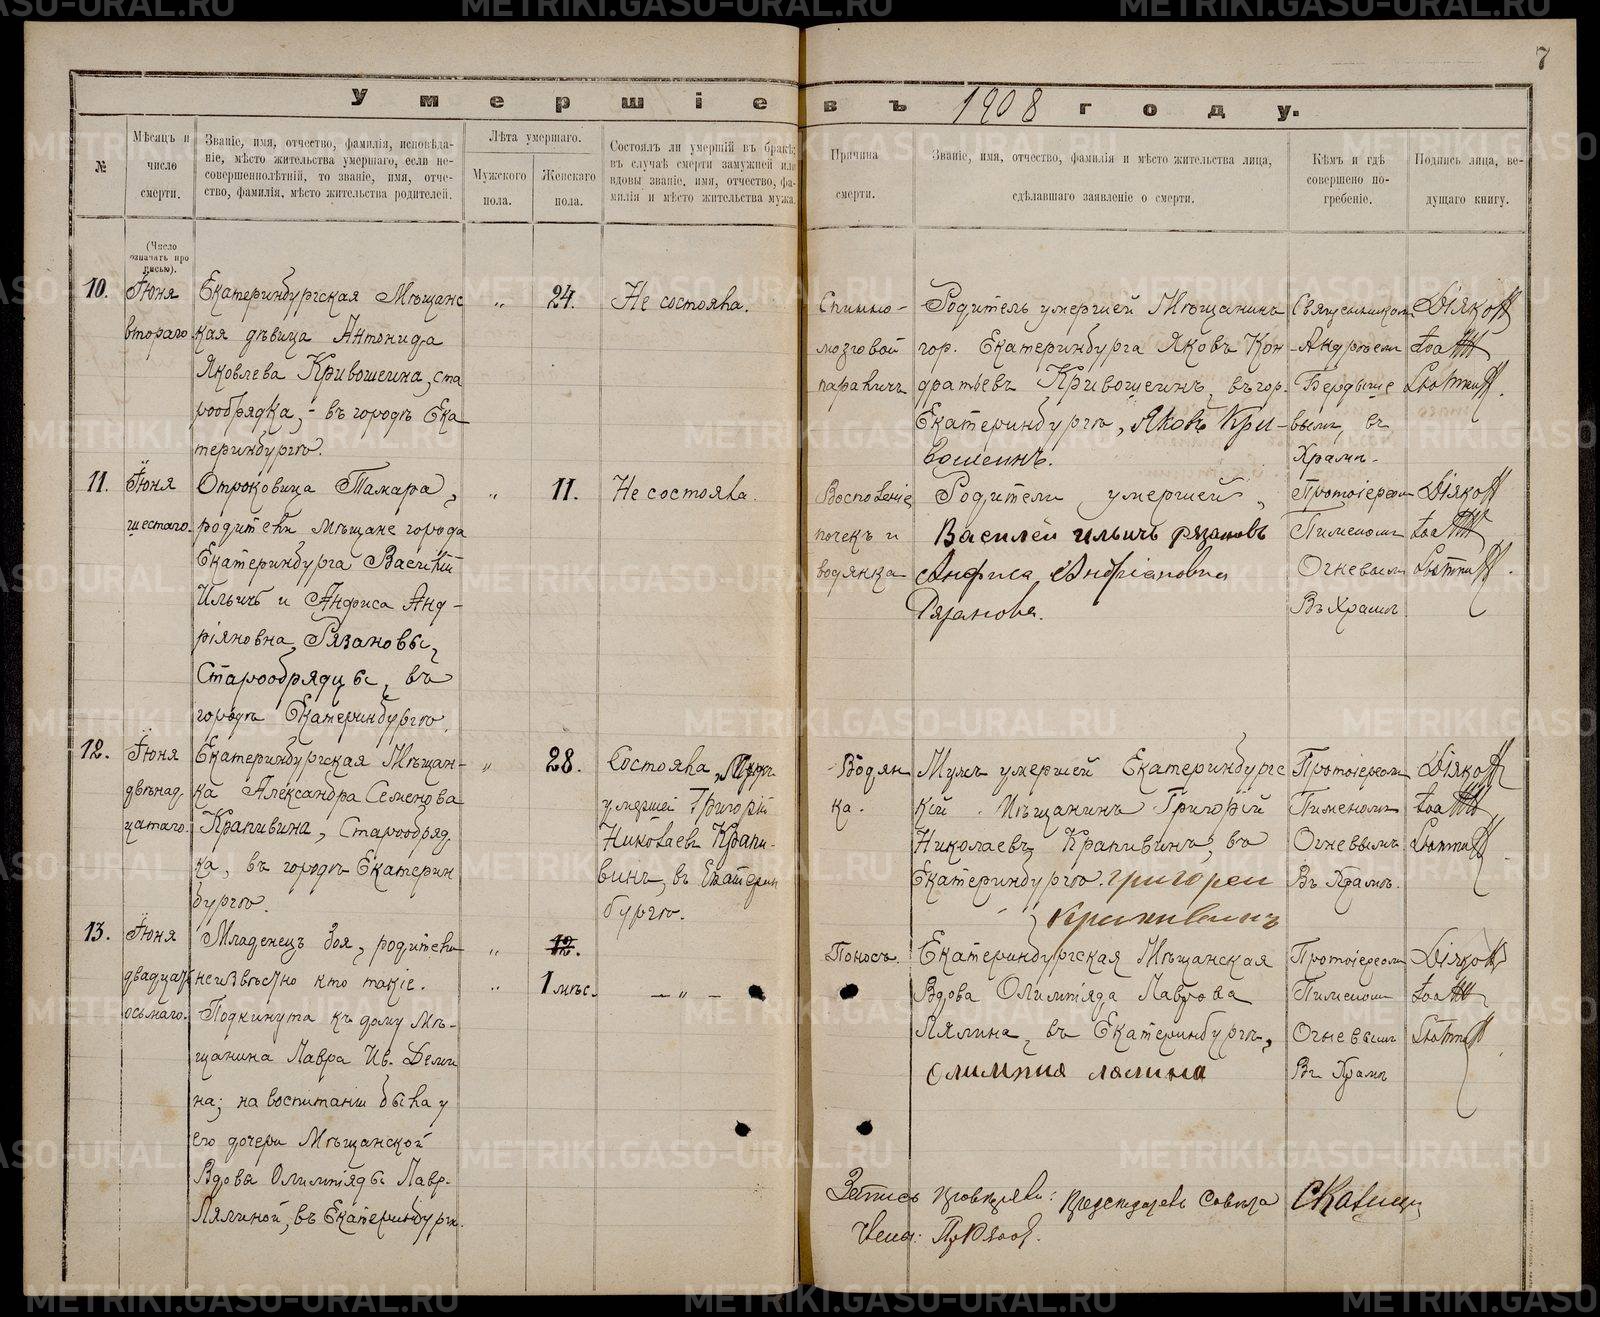 7
Умершіе въ 1908 году.
№
Мѣсяцъ и
число
смерти.
Званіе, имя, отчество, фамилія, исповѣда-
ніе, мѣсто жительства умершаго, если не-
совершеннолѣтній, то званіе, имя, отче-
ство, фамилія, мѣсто жительства родителей.
Лѣта умершаго.
Мужского
пола.
Женскаго
пола.
Состоялъ ли умершій въ бракѣ;
въ случаѣ смерти замужней или
вдовы званіе, имя, отчество, фа-
милія и мѣсто жительства мужа.
Причина
смерти.
Званіе, имя, отчество, фамилія и мѣсто жительства лица,
сдѣлавшаго заявленіе о смерти.
Кѣмъ и гдѣ
совершено по-
гребеніе.
Подпись лица, ве-
дущаго книгу.
(Число
означать про
писью).
10.
Іюня
втораго
Екатеринбургская Мѣщанс
кая дѣвица Антонида
Яковлева Кривошеина, ста
рообрядка, - въ городѣ Ека
теринбургѣ.
„
24.
Не состояла.
Спинно-
мозговой
параличъ
Родитель умершей Мѣщанинъ
гор. Екатеринбурга Яковъ Кон-
дратьевъ Кривошеинъ, въ гор.
Екатеринбургѣ, Яковъ Кри-
вошеинъ.
Священником
Андреем
Бердыше
вымъ, въ
Храмѣ.
Діякон
11.
Іюня
шестаго.
Отроковица Тамара,
родители мѣщане города
Екатеринбурга Василій
Ильичъ и Анфиса Анд-
ріяновна, Рязановы,
Старообрядцы, въ
городѣ Екатеринбургѣ.
„
11.
Не состояла.
Восполеніе
почекъ и
водянка
Родители умершей,
Василей ильичь рязановъ
Анфиса Андріановна
Рязанова.
Протоіереом
Пименом
Огневым
Въ Храмѣ
Діякон
12.
Іюня
двѣнад.
цатаго.
Екатеринбургская Мѣщан-
ка Александра Семенова
Крапивина, Старообряд
ка, въ городѣ Екатерин
бургѣ.
„
28.
Состояла, Мужъ
умершей Григорій
Николаевъ Крапи-
винъ, въ Екатерин
бургѣ.
Водян
ка.
Мужъ умершей Екатеринбургс
кій Мѣщанинъ Григорій
Николаевъ Крапивинъ, въ
Екатеринбургѣ. григорей
Крапивинъ
Протоіереом
Пименомъ
Огневымъ
Въ Храмѣ.
Діякон
13.
Іюня
двадцать
осьмаго.
Младенецъ Зоя, родители
неизвѣстно кто такіе.
Подкинута къ дому Мѣ-
щанина Лавра Ив. Деми
на; на воспитаніи была у
его дочери Мѣщанской
Вдовы Олимпіяды Лавр.
Лялиной, въ Екатеринбургѣ.
„
12.
„
1 мѣс.
— „ —
Поносъ.
Екатеринбургская Мѣщанская
Вдова Олимпіяда Лаврова
Лялина, въ Екатеринбургѣ,
олимпия лялина
Протоіереом
Пименом
Огневымъ
Въ Храмѣ
Діякон
Запись провѣряли: Предсѣдатель Совѣта
Члены:
METRIKI.GASO-URAL.RU